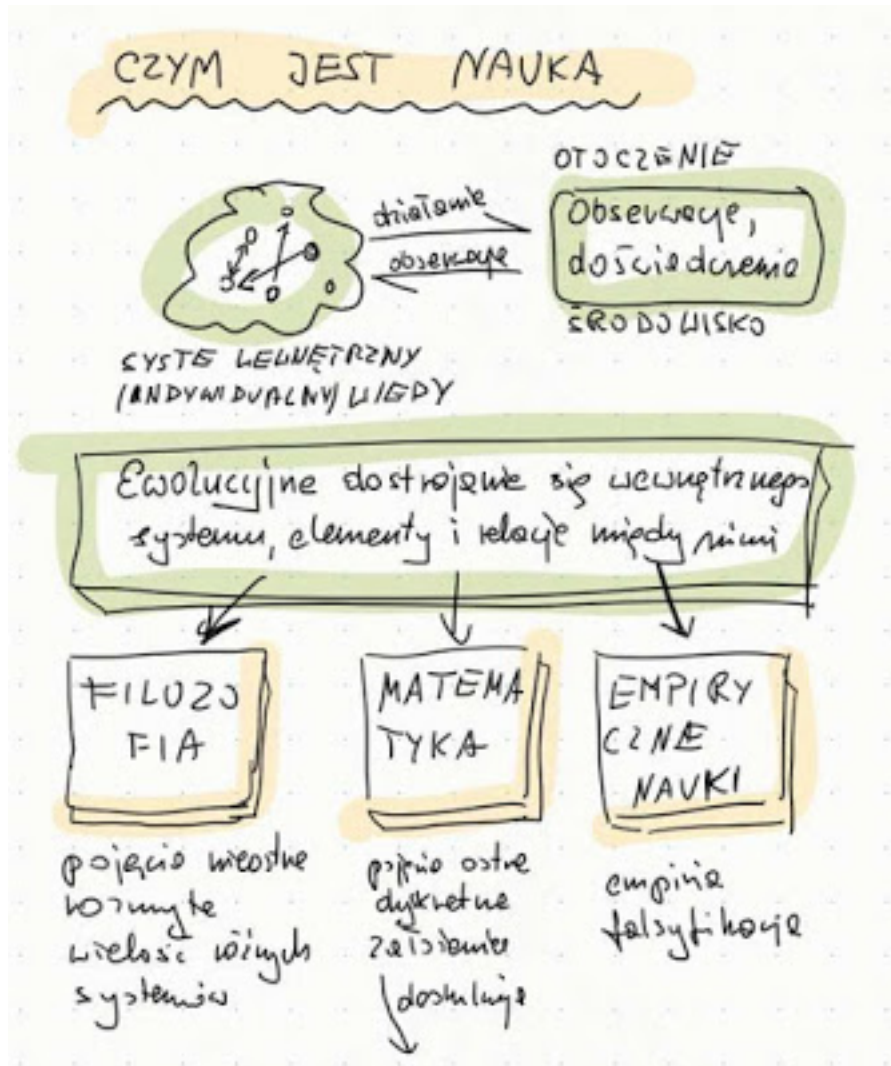 CZYM JEST NAUKA
OTOCZENIE
działanie
obserwacje
Obserwacje,
doświadczenia
ŚRODOWISKO
SYSTE WEWNĘTRZNY
(INDYWIDUALNY) WIEDZY
Ewolucyjne dostrojenie się wewnętrznego
systemu, elementy i relacje między nimi
FILOZO
FIA
MATEMA
TYKA
EMPIRY
CZNE
NAUKI
pojęcia nieostre
rozmyte
wielość różnych
systemów
pojęcia ostre
dyskretne
założenia
empiria
falsyfikacja